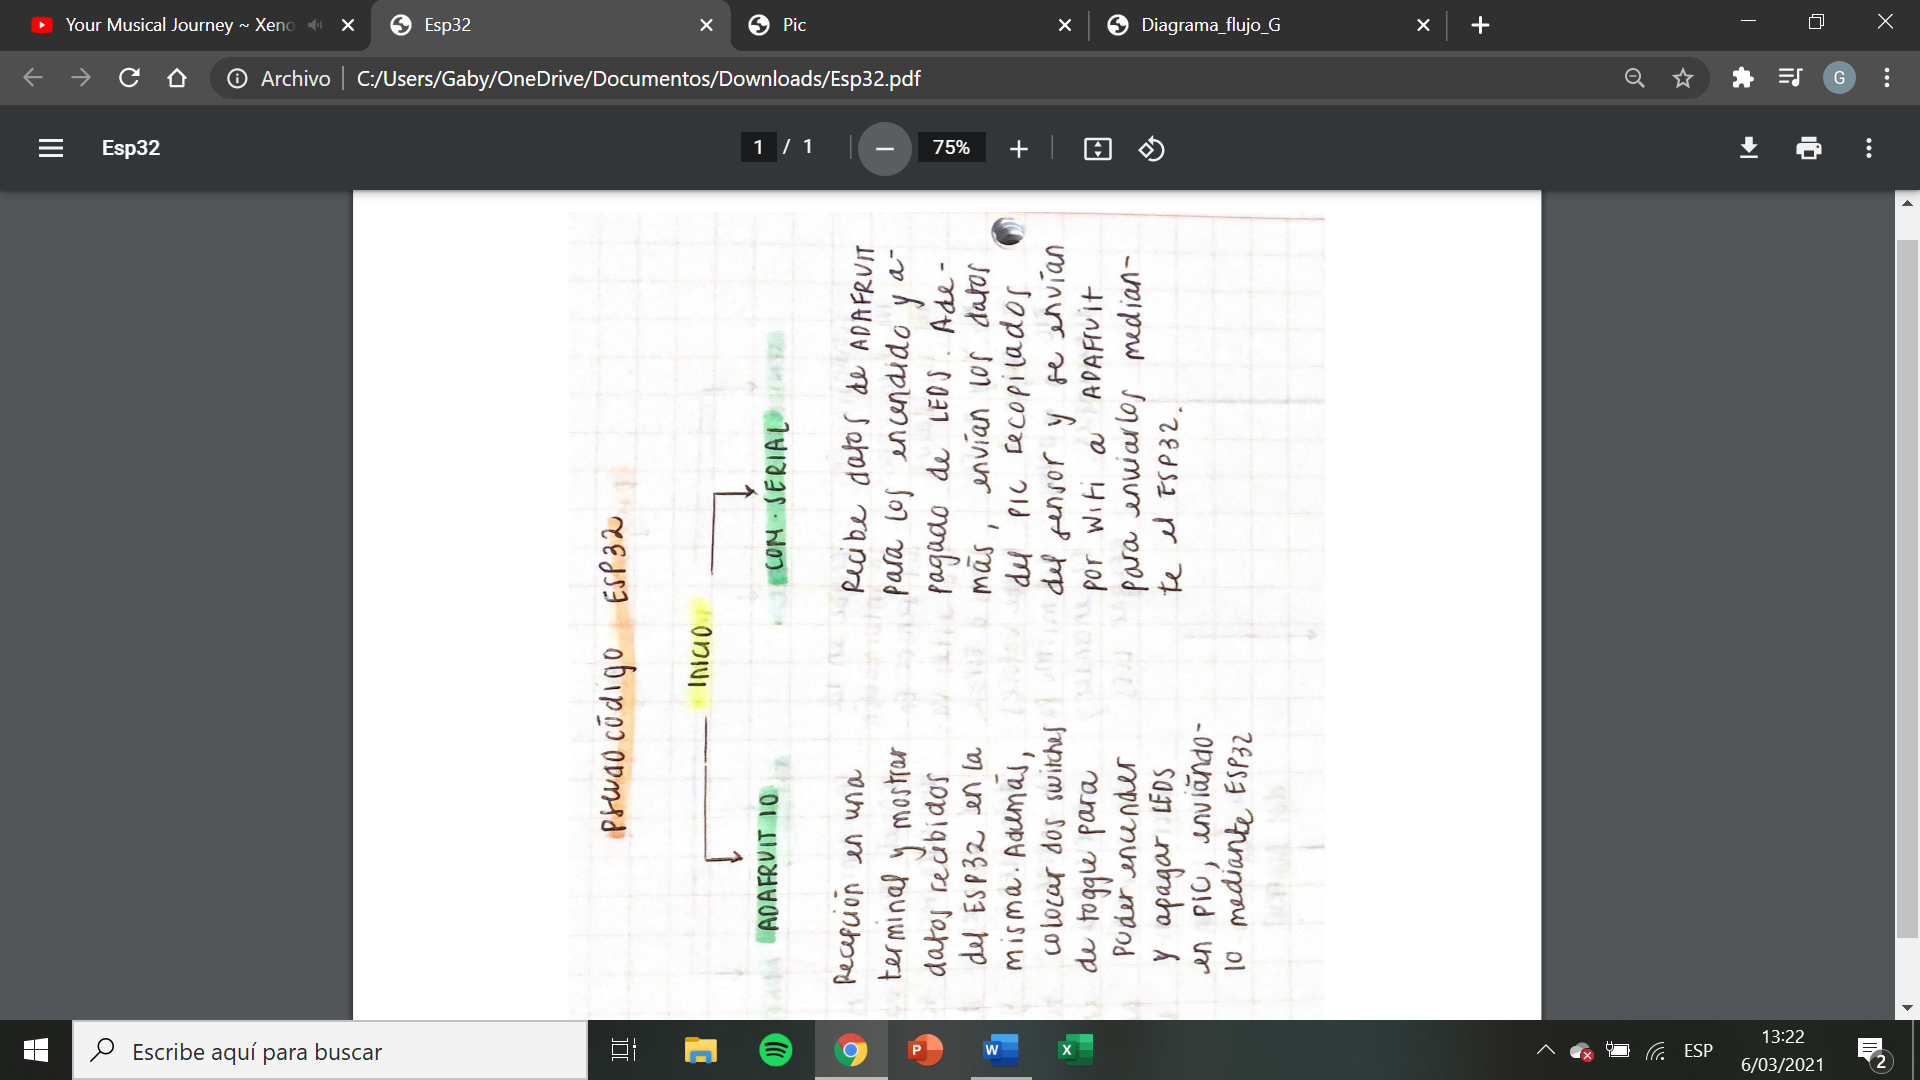 Your Musical Journey ~ Xeno
Esp32
Pic
Diagrama_flujo_G
Archivo
C:/Users/Gaby/OneDrive/Documentos/Downloads/Esp32.pdf
G
Esp32
1 / 1
75%
Pseudocódigo ESP32
INICIO
ADAFRUIT IO
Recepción en una
terminal y mostrar
datos recibidos
del ESP32 en la
misma. Además,
colocar dos switches
de toggle para
poder encender
y apagar LEDS
en PIC, enviándo-
lo mediante ESP32
COM. SERIAL
Recibe datos de ADAFRUIT
para los encendido y a-
pagado de LEDS. Ade-
más, envían los datos
del PIC recopilados
del sensor y se envían
por WiFi a ADAFRUIT
para enviarlos median-
te el ESP32.
Escribe aquí para buscar
ESP
13:22
6/03/2021
2